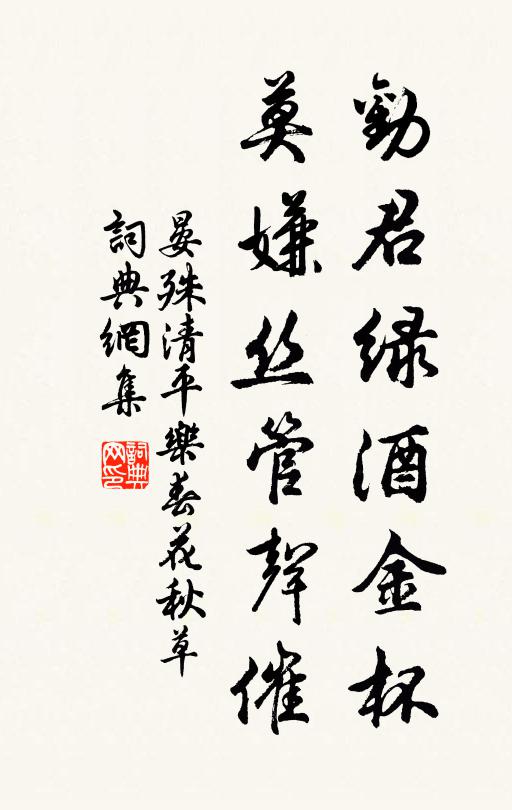 勸君緑酒金杯
莫嫌丝管聲催
晏殊清平樂春花秋草
詞典網集
詞典网印